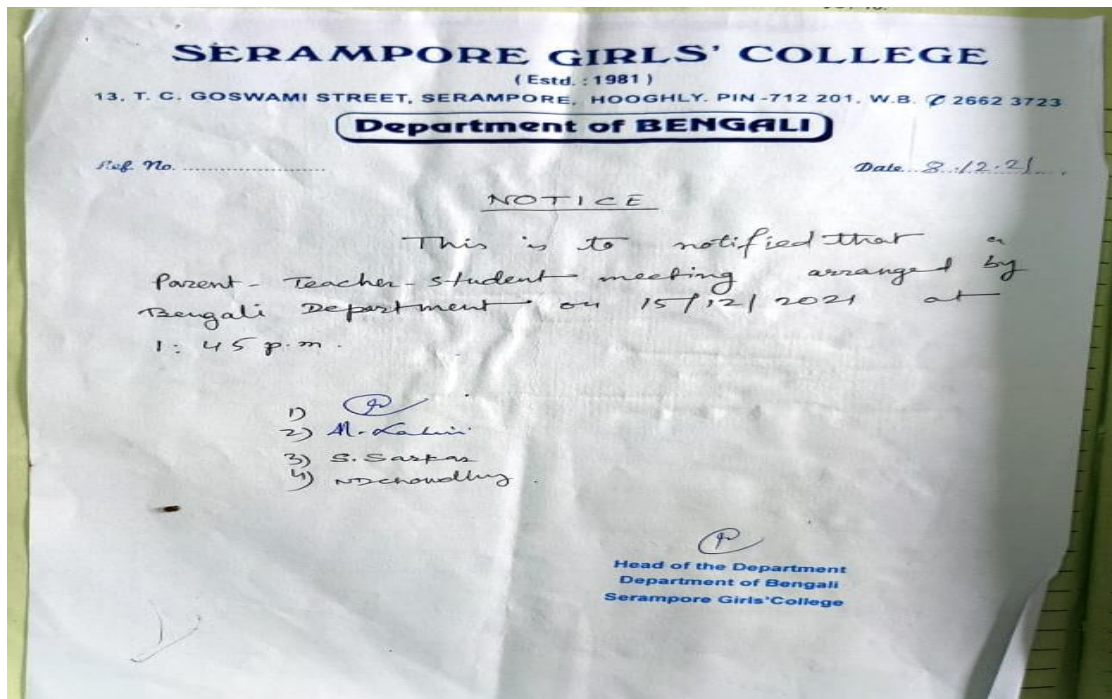 SERAMPORE GIRLS' COLLEGE
( Estd. : 1981 )
13, T. C. GOSWAMI STREET, SERAMPORE, HOOGHLY. PIN -712 201, W.B. ✆ 2662 3723
Department of BENGALI
Ref. No. ............................
Date...8./12.21....
NOTICE
This is to notified that a
Parent - Teacher - student meeting arranged by
Bengali Department on 15/12/2021 at
1:45 p.m.
1)
2) M.
3) S. Sarkar
4) NDchowdhury.
Head of the Department
Department of Bengali
Serampore Girls'College